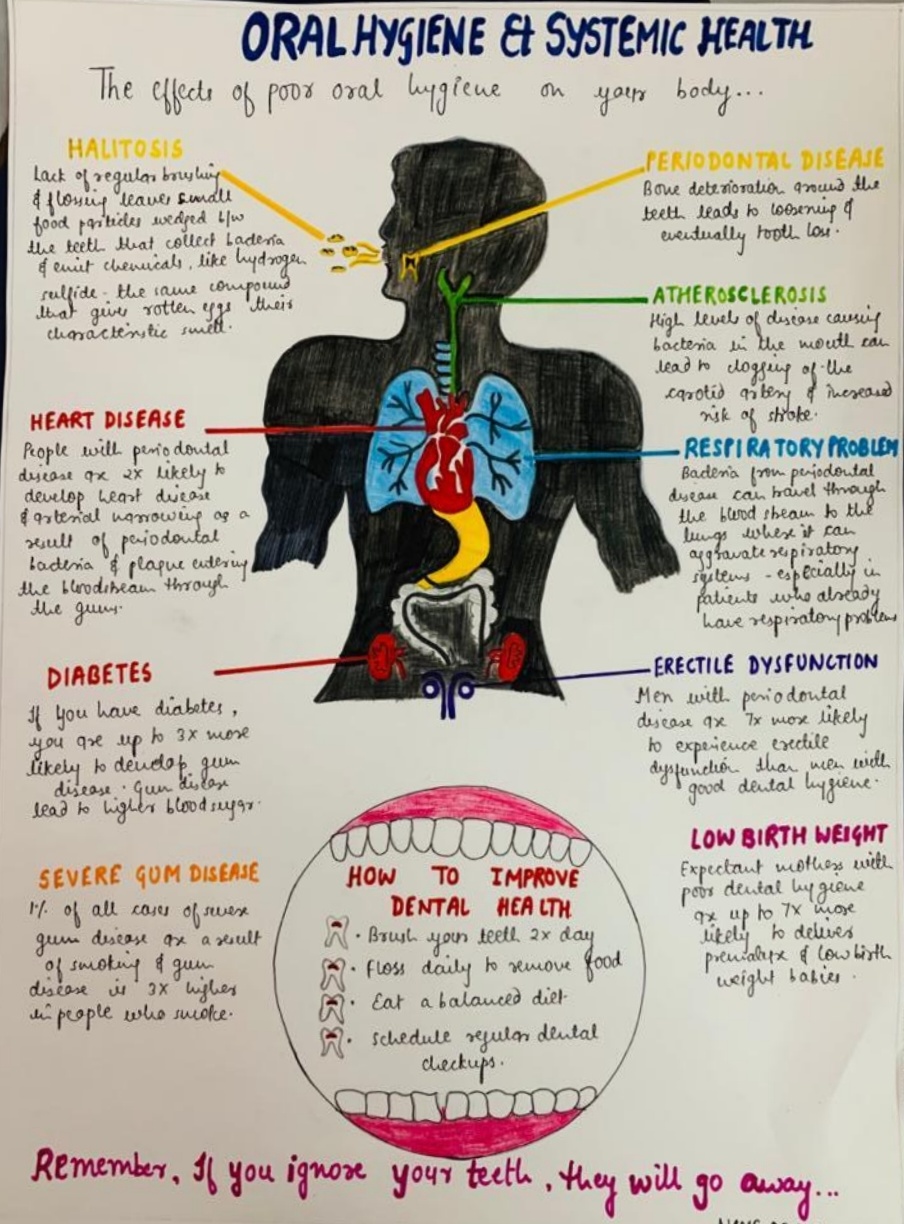 ORAL HYGIENE & SYSTEMIC HEALTH
The effects of poor oral hygiene on your body...
HALITOSIS
Lack of regular brushing
& flossing leaves small
food particles wedged b/w
the teeth that collect bacteria
& emit chemicals, like hydrogen
sulfide - the same compound
that gives rotten eggs their
characteristic smell.
PERIODONTAL DISEASE
Bone deterioration around the
teeth leads to loosening &
eventually tooth loss.
ATHEROSCLEROSIS
High levels of disease causing
bacteria in the mouth can
lead to clogging of the
carotid artery & increased
risk of stroke.
HEART DISEASE
People with periodontal
disease are 2x likely to
develop heart disease
& arterial narrowing as a
result of periodontal
bacteria & plaque entering
the bloodstream through
the gums.
RESPIRATORY PROBLEM
Bacteria from periodontal
disease can travel through
the blood stream to the
lungs where it can
aggravate respiratory
systems - especially in
patients who already
have respiratory problems
DIABETES
If you have diabetes,
you are up to 3x more
likely to develop gum
disease. Gum disease
lead to higher blood sugar.
ERECTILE DYSFUNCTION
Men with periodontal
disease are 7x more likely
to experience erectile
dysfunction than men with
good dental hygiene.
SEVERE GUM DISEASE
1% of all cases of severe
gum disease are a result
of smoking & gum
disease is 3x higher
in people who smoke.
LOW BIRTH WEIGHT
Expectant mothers with
poor dental hygiene
are up to 7x more
likely to deliver
premature & low birth
weight babies.
HOW TO IMPROVE
DENTAL HEALTH
• Brush your teeth 2x day
• Floss daily to remove food
• Eat a balanced diet
• Schedule regular dental
checkups.
Remember, If you ignore your teeth, they will go away...